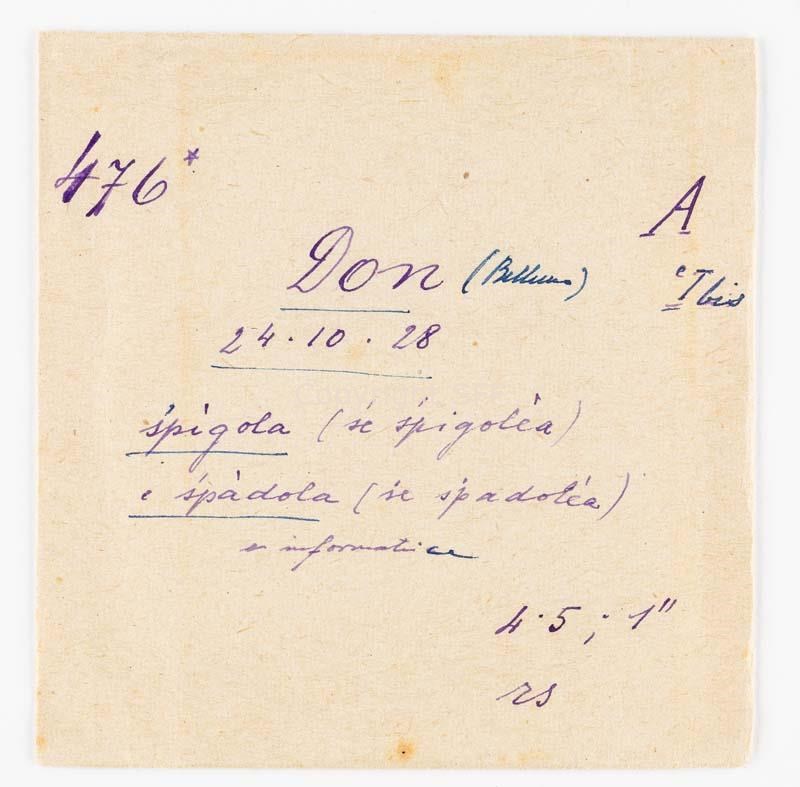 476*
A
Don (Belluno)
e I bis
24·10·28
śpìgola (śe śpigoléa)
e śpàdola (śe śpadoléa)
e informatrice
4·5; 1"
rs